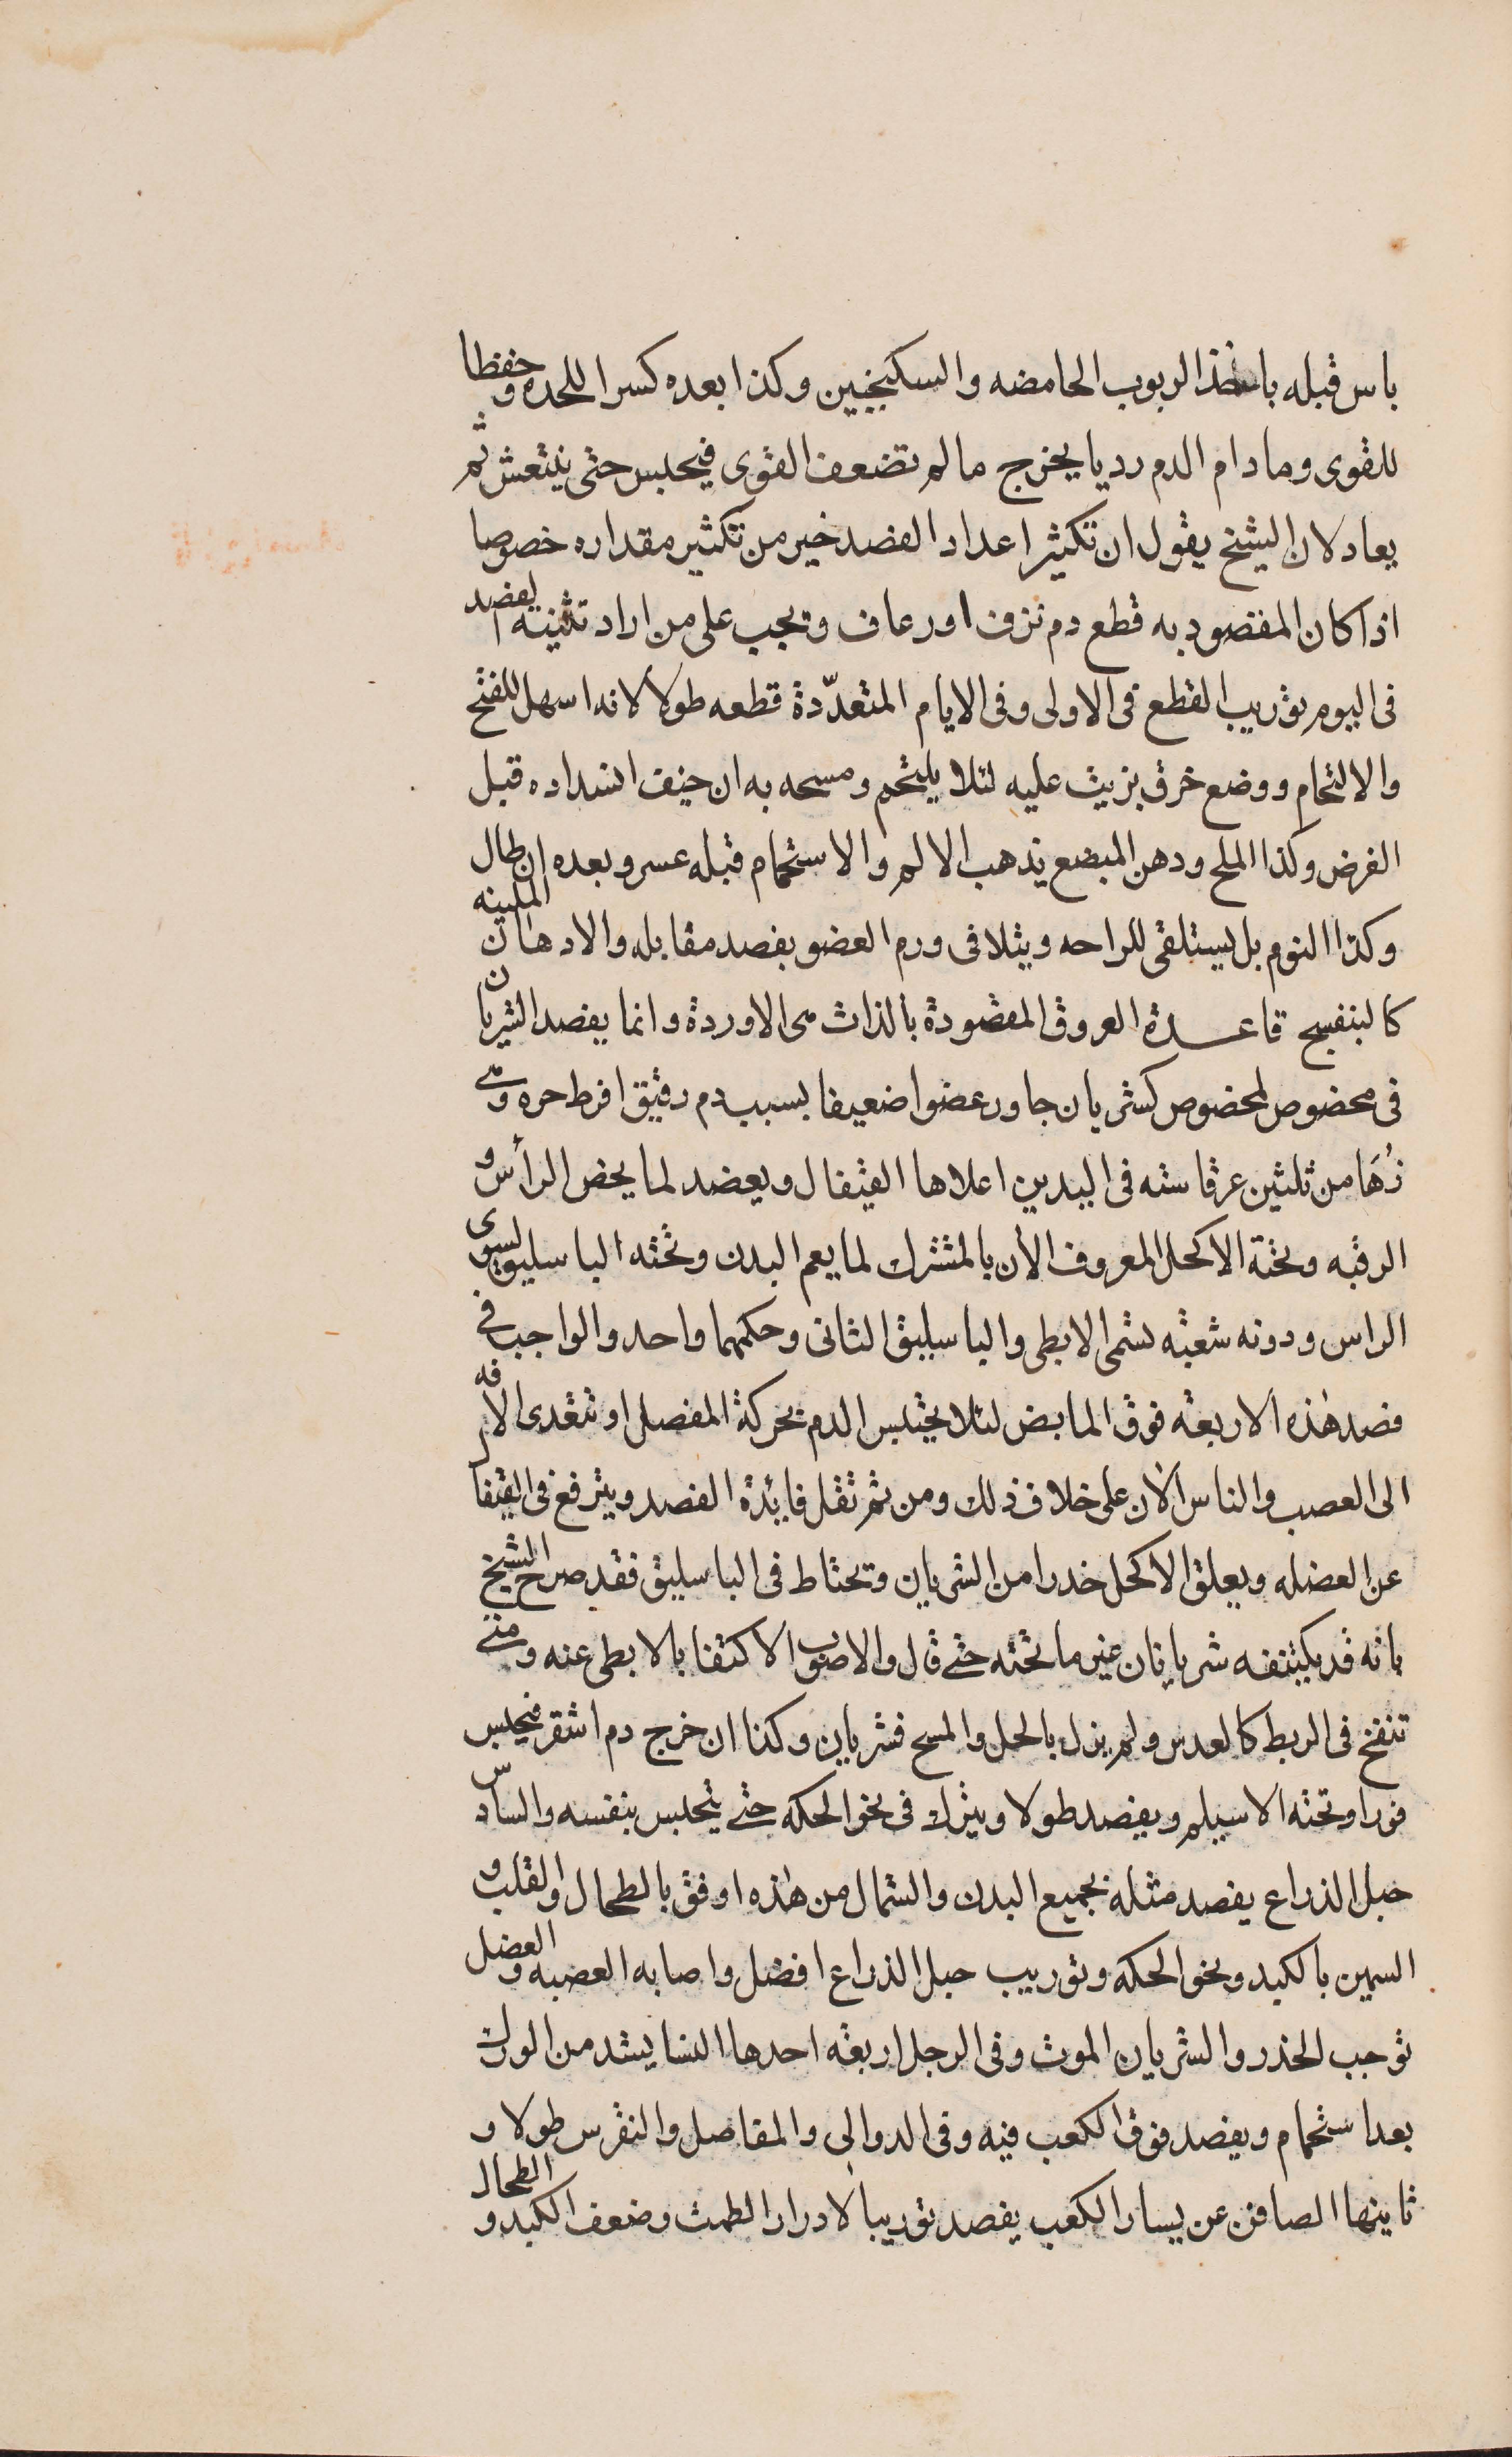 باس قبله باخذ الربوب الحامضه والسكنجبين وكذا بعده كسرا للحده وحفظا
للقوى وما دام الدم رديا يخرج مالم تضعف القوى فيحبس حتى ينتعش ثم
يعاد لان الشيخ يقول ان تكثير اعداد الفصد خير من تكثير مقداره خصوصا
اذا كان المقصود به قطع دم نزف اورعاف ويجب على من اراد تثنيته الفصد
فى اليوم توريب القطع فى الاولى وفى الايام المتعدّدة قطعه طولا لانه اسهل للفتح
والالتحام ووضع خرق بزيت عليه لئلا يلتحم ومسحه به ان خيف انسداده قبل
الغرض وكذا الملح ودهن المبضع يذهب الالم والاستحمام قبله عسر وبعده ان طال
وكذا النوم بل يستلقى للراحه ويتلافى ورم العضو بفصد مقابله والادهان الملينه
كالبنفسج قاعدة العروق المفصودة بالذات هى الاوردة وانما يفصد الشريان
فى مخصوص لمخصوص كشريان جاور عضوا ضعيفا بسبب دم رقيق افرط حره وهى
زُهَا من ثلثين عرقا سته فى اليدين اعلاها القيفال ويفصد لما يخص الرأس و
الرقبه وتحته الاكحل المعروف الآن بالمشترك لما يعم البدن وتحته الباسليق لسوى
الراس ودونه شعبته تسمى الابطى والباسليق الثانى وحكمهما واحد والواجب فى
فصد هذه الاربعه فوق المابض لئلا يحتبس الدم بحركة المفصل او تتعدى الآفه
الى العصب والناس الآن على خلاف ذلك ومن ثم تقل فائدة الفصد ويترفع فى القيفال
عن العضله ويعلق الاكحل حذرا من الشريان ويحتاط فى الباسليق فقد صرح الشيخ
بانه قد يكتنفه شريانان غير ما تحته حتى قال والاصوب الاكتفا بالابطى عنه ومتى
تنفخ فى الربط كالعدس ولم يزل بالحل والمسح فشريان وكذا ان خرج دم اشقر فيحبس
فورا وتحته الاسيلم ويفصد طولا ويترك فى نحو الحكه حتى ينحبس بنفسه والسادس
حبل الذراع يفصد مثله لجميع البدن والشمال من هذه اوفق بالطحال والقلب و
اليمين بالكبد ونحو الحكه وتوريب حبل الذراع افضل واصابه العصبه والعضل
توجب الخدر والشريان الموت وفى الرجل اربعه احدها النسا يشد من الورك
بعد استحمام ويفصد فوق الكعب فيه وفى الدوالى والمفاصل والنقرس طولا و
ثانيها الصافن عن يسار الكعب يفصد توريبا لادرار الطمث وضعف الكبد والطحال